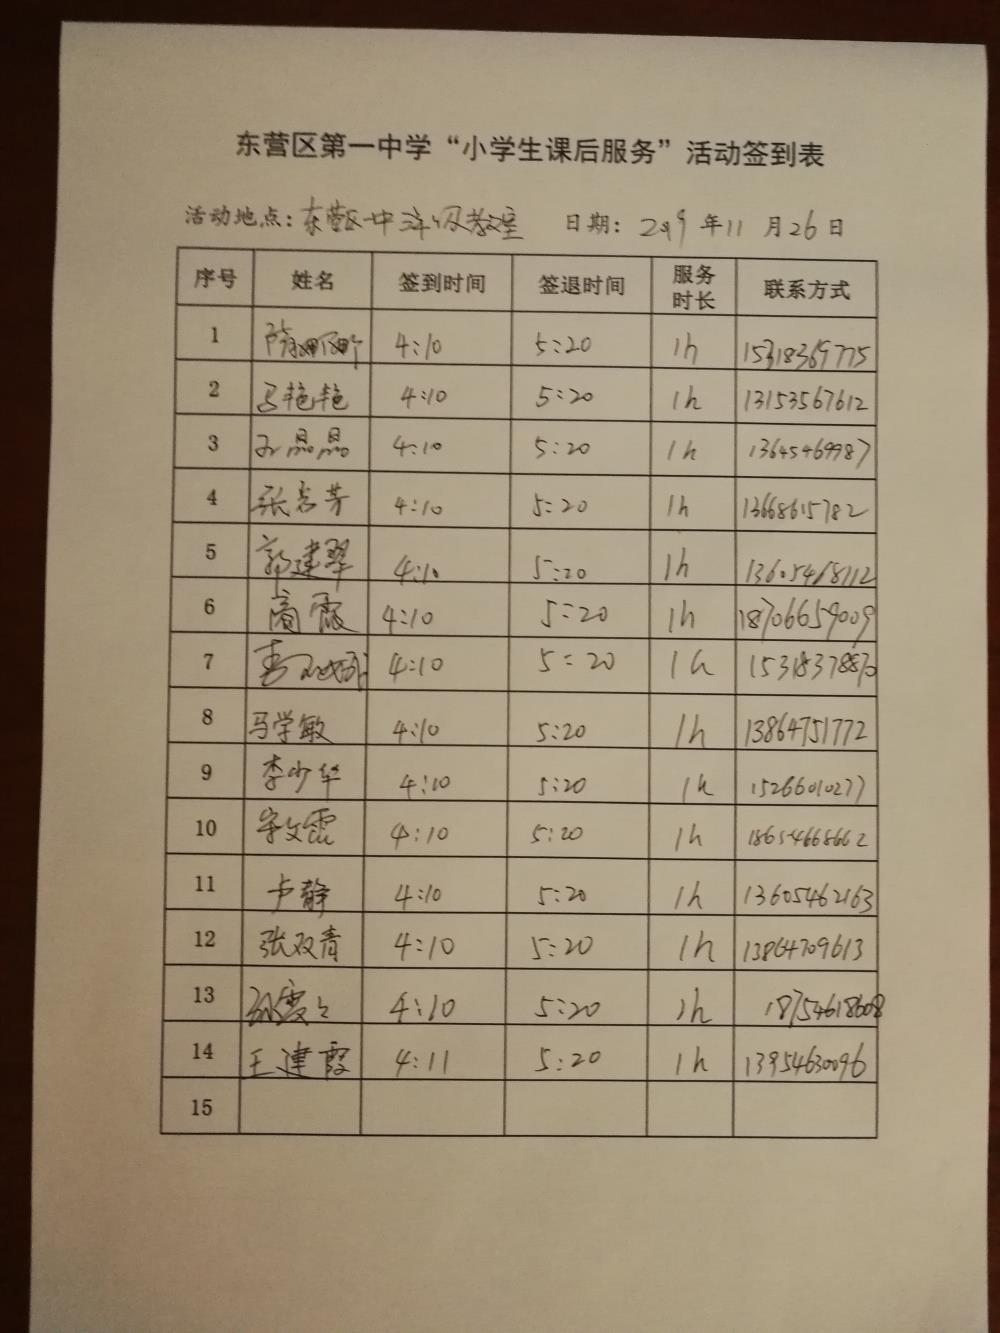 东营区第一中学“小学生课后服务”活动签到表
活动地点：东营区一中 级教室 日期：2019年11月26日
序号 姓名 签到时间 签退时间 服务时长 联系方式
1 4:10 5:20 1h 15318369775
2 马艳艳 4:10 5:20 1h 13153567612
3 孙晶晶 4:10 5:20 1h 13645469987
4 张芳 4:10 5:20 1h 13668615782
5 郭建翠 4:10 5:20 1h 13605468112
6 霞 4:10 5:20 1h 18706659009
7 4:10 5:20 1h
8 马学敏 4:10 5:20 1h 13864751772
9 李少华 4:10 5:20 1h 15266010277
10 宋文霞 4:10 5:20 1h 18654668662
11 卢静 4:10 5:20 1h 13605462163
12 张双青 4:10 5:20 1h 13864709613
13 4:10 5:20 1h 18754618608
14 王建霞 4:11 5:20 1h 13954630096
15